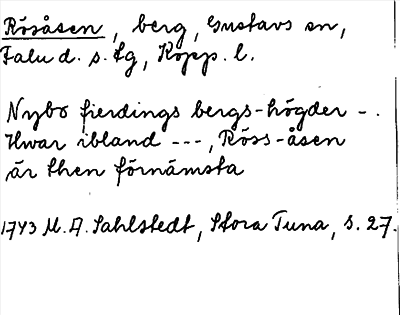 Rösåsen, berg, Gustavs sn,
Falu d. s. fg, Kopp. l.
Nybo fierdings bergs-högder -.
Hwar ibland ---, Röss-åsen
är then förnämsta
1743 M. A. Sahlstedt, Stora Tuna, s. 27.